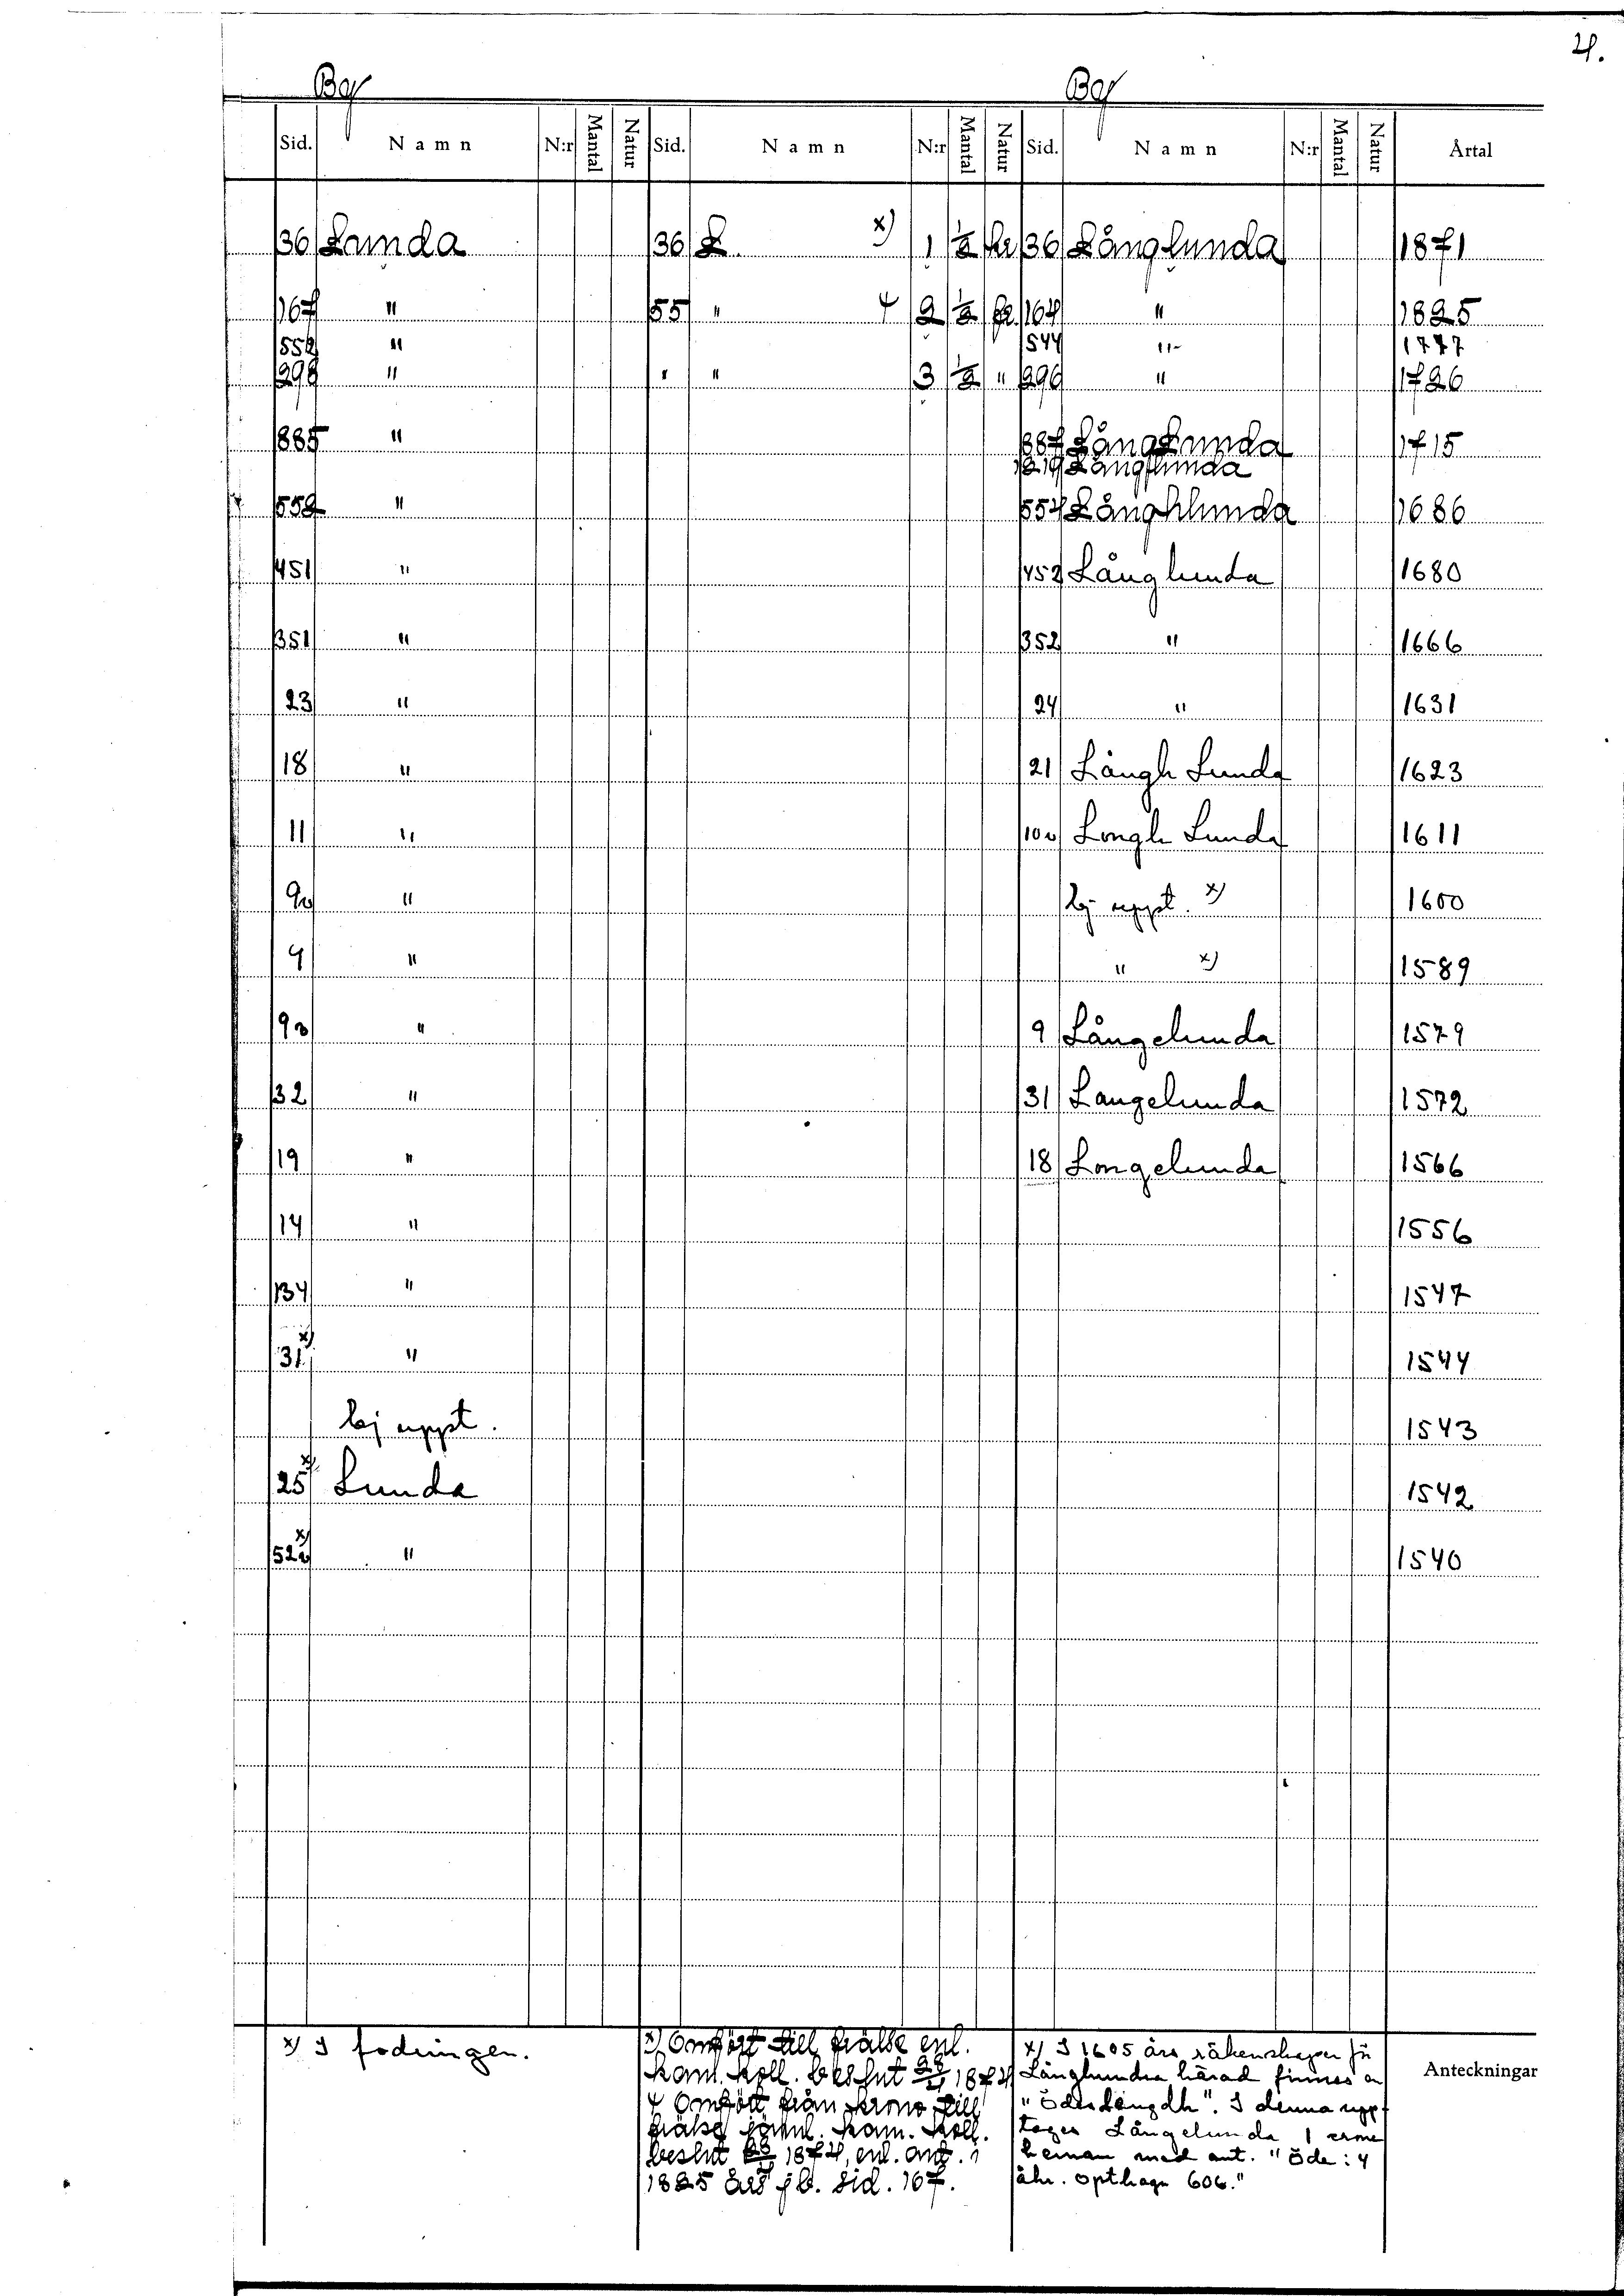 4.
By By
Sid. Namn N:r Mantal Natur Sid. Namn N:r Mantal Natur Sid. Namn N:r Mantal Natur Årtal
36 Lunda 36 L. x) 1 ½ kr 36 Långlunda 1871
167 " 55 " 2 ½ fr. 164 " 1825
552 " 544 " 1777
298 " " " 3 ½ " 296 " 1726
885 " 887 LångLunda 1715
1219 Långlunda
552 " 554 Långhlunda 1686
451 " 452 Långlunda 1680
351 " 352 " 1666
23 " 24 " 1631
18 " 21 Långh Lunda 1623
11 " 10v Longh Lunda 1611
9v " Ej uppt. x) 1600
9 " " x) 1589
9v " 9 Långelunda 1579
32 " 31 Langelunda 1572
19 " 18 Longelunda 1566
14 " 1556
134 " 1547
31 x) " 1544
Ej uppt. 1543
25 x) Lunda 1542
52v x) " 1540
x) I fodringen.
x) Omfört till frälse enl.
kam. koll. beslut 1874
Omfört från krono till
frälse jämnl. kam. koll.
beslut 1874, enl. ant. i
1825 års jb. sid. 167.
x) I 1605 års räkenskaper för
Långhundra härad finnes en
"Ödeslengdh". I denna upp-
tages Långelunda 1 crone
heman med ant. "Öde: 4
åhr. Opthagn 606."
Anteckningar